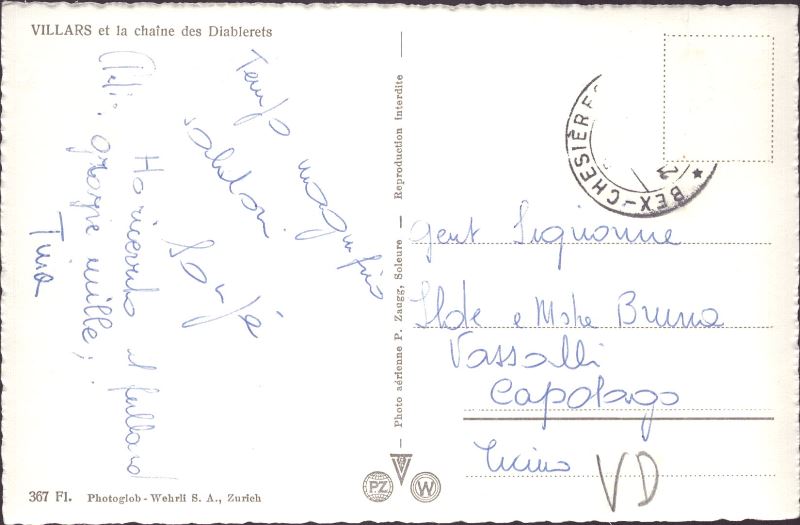 VILLARS et la chaîne des Diablerets
Tempo magnifico
saluti
Ho ricevuto il foulard
grazie mille,
Tina
Photo aérienne P. Zaugg, Soleure — Reproduction Interdite
BEX-CHESIÈRES
Gent Signorine
Ilde e Bruna
Vassalli
Capolago
Ticino
VD
PZ
W
367 Fl. Photoglob-Wehrli S. A., Zurich